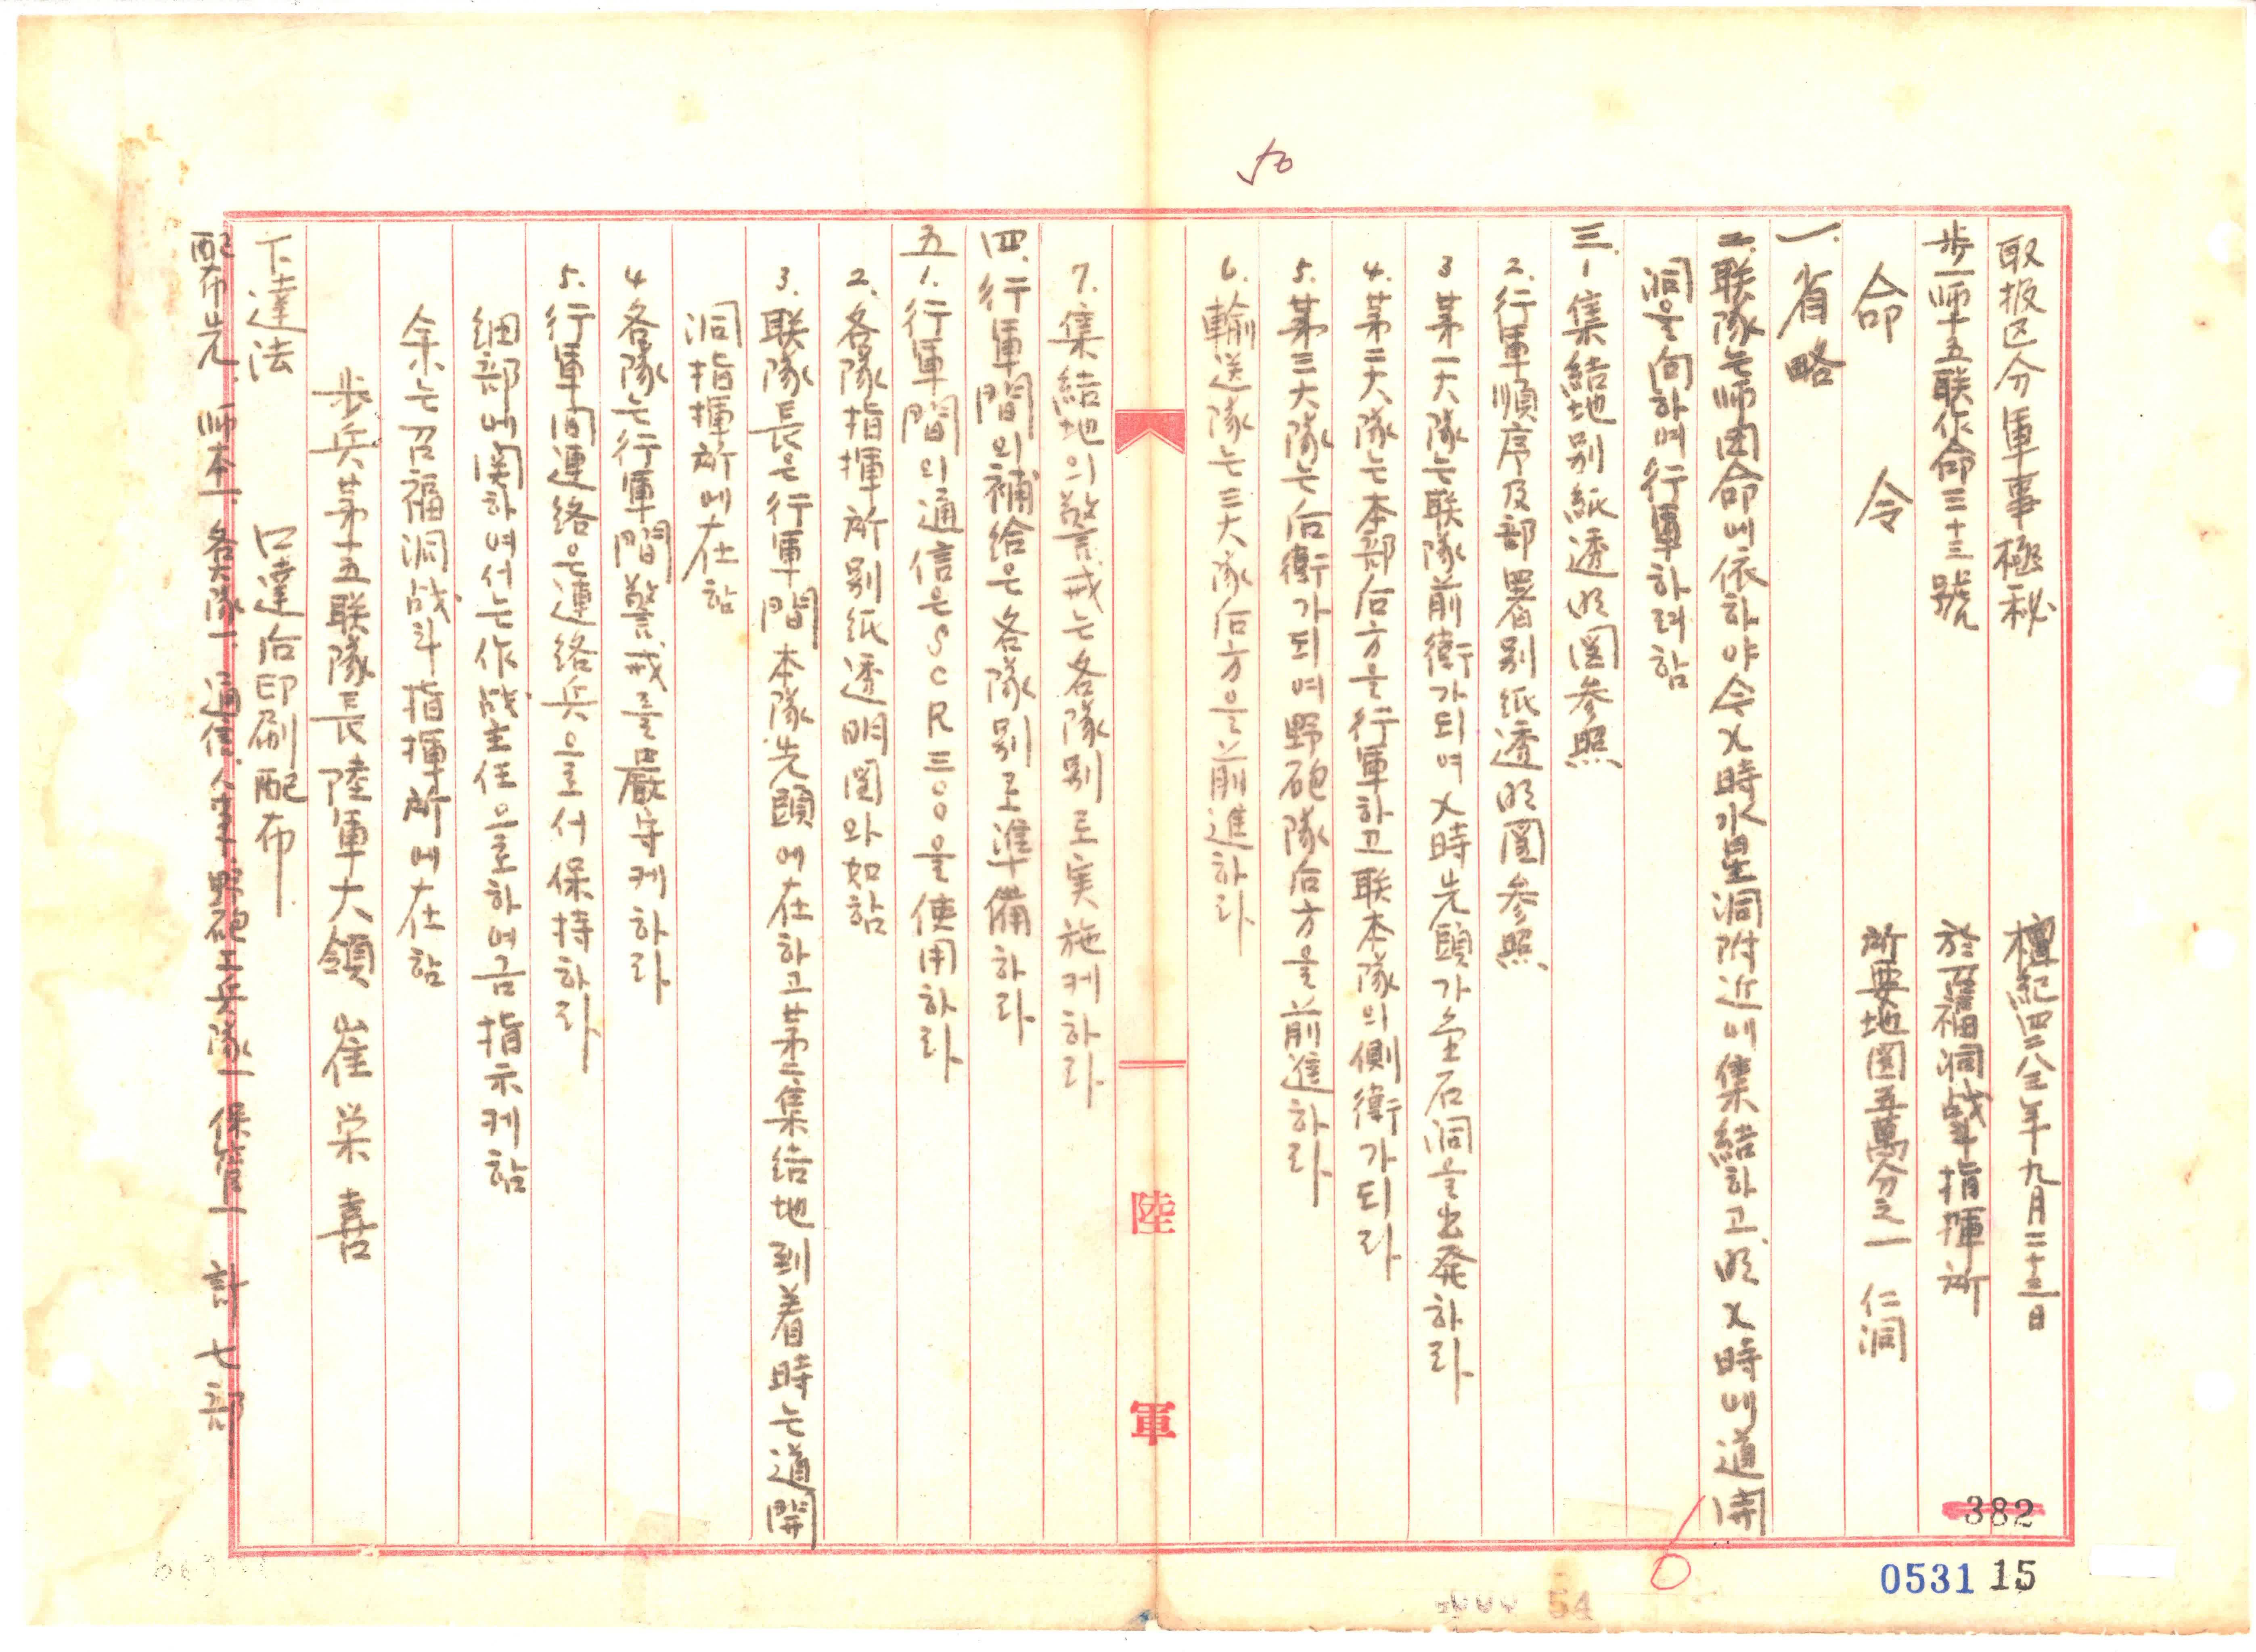 50
取扱区分軍事極秘 檀紀四二八三年九月二十三日
步一師十五联作命三十三號 於召福洞战斗指揮所
命 令 所要地図五萬分之一 仁洞
一. 省略
二. 联隊는师団命에依하야今X時水星洞附近에集結하고、明X時에道開
洞을向하여行軍하려함
三. 1 集結地別紙透明図参照
2. 行軍順序及部署別紙透明図参照
3 苐一大隊는联隊前衛가되여X時先頭가 石洞을出発하라
4. 苐二大隊는本部后方을行軍하고联本隊의側衛가되라
5. 苐三大隊는后衛가되여野砲隊后方을前進하라
6. 輸送隊는三大隊后方을前進하라
陸軍
7. 集結地의警戒는各隊別로実施케하라
四. 行軍間의補給은各隊別로準備하라
五 1. 行軍間의通信은SCR三〇〇을使用하라
2. 各隊指揮所別紙透明図와如함
3. 联隊長은行軍間本隊先頭에在하고苐二集結地到着時는道開
洞指揮所에在함
4 各隊는行軍間警戒를嚴守케하라
5. 行軍间連絡은連絡兵으로서保持하라
细部에関하여서는作战主任으로하여금指示케함
余는召福洞战斗指揮所에在함
步兵苐十五联隊長陸軍大領 崔栄喜
下達法 口達后印刷配布
配布先. 师本一. 各大隊一. 通信 野砲工兵隊一 保管一 計七部
382
0531 15
54
6